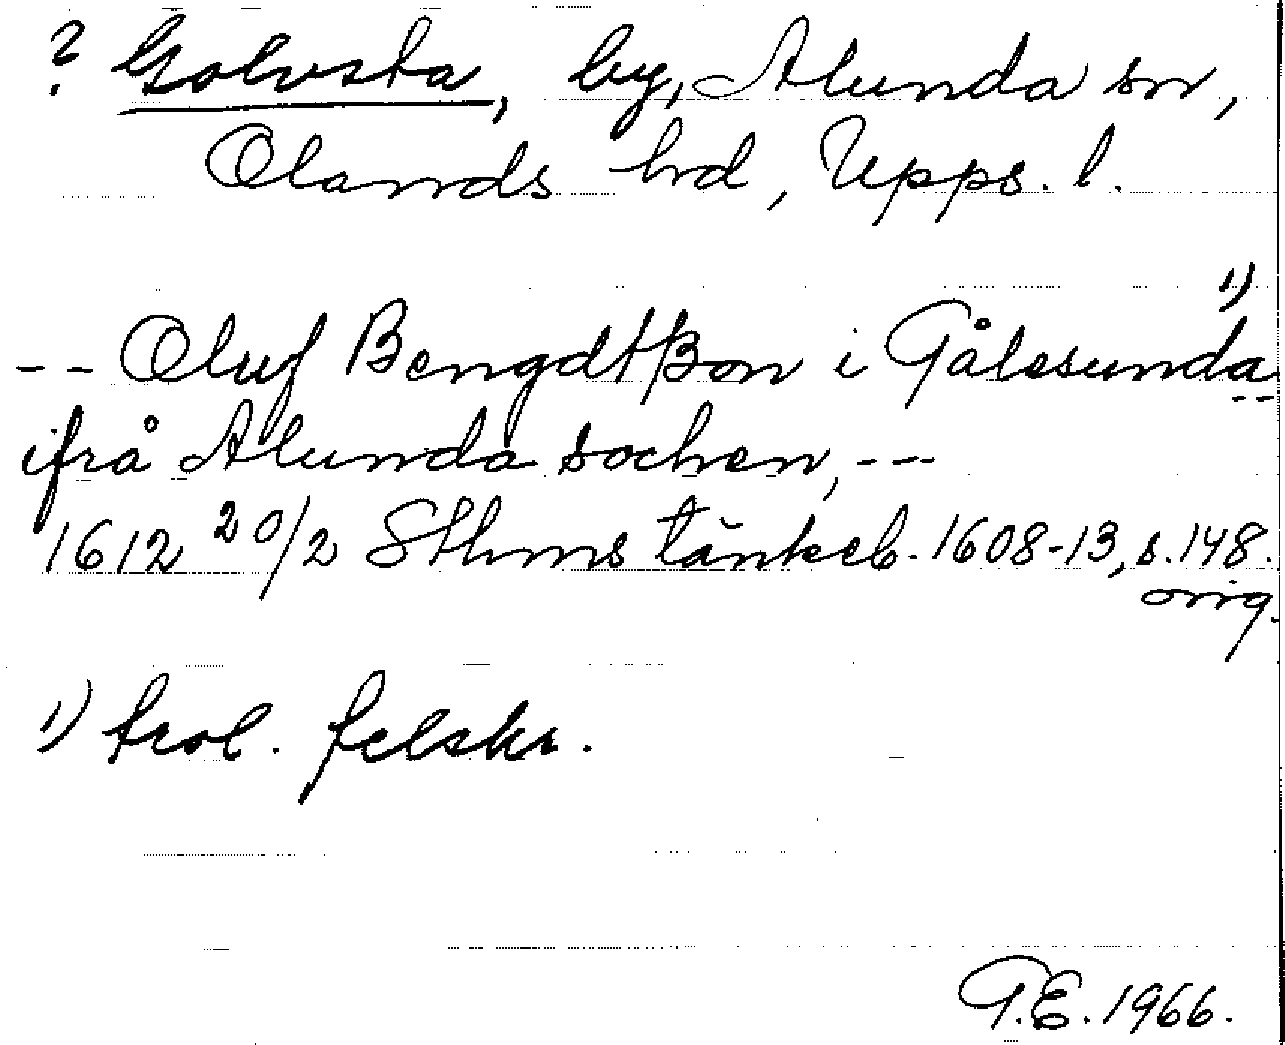 ? Golvsta, by, Alunda sn,
Olands hrd, Upps. l.
1)
-- Oluf Bengdtßon i Gålesunda
ifrå Alunda sochen, ---
1612 20/2 Sthms tänkeb. 1608-13, s. 148.
orig.
1) trol. felskr.
G.E. 1966.